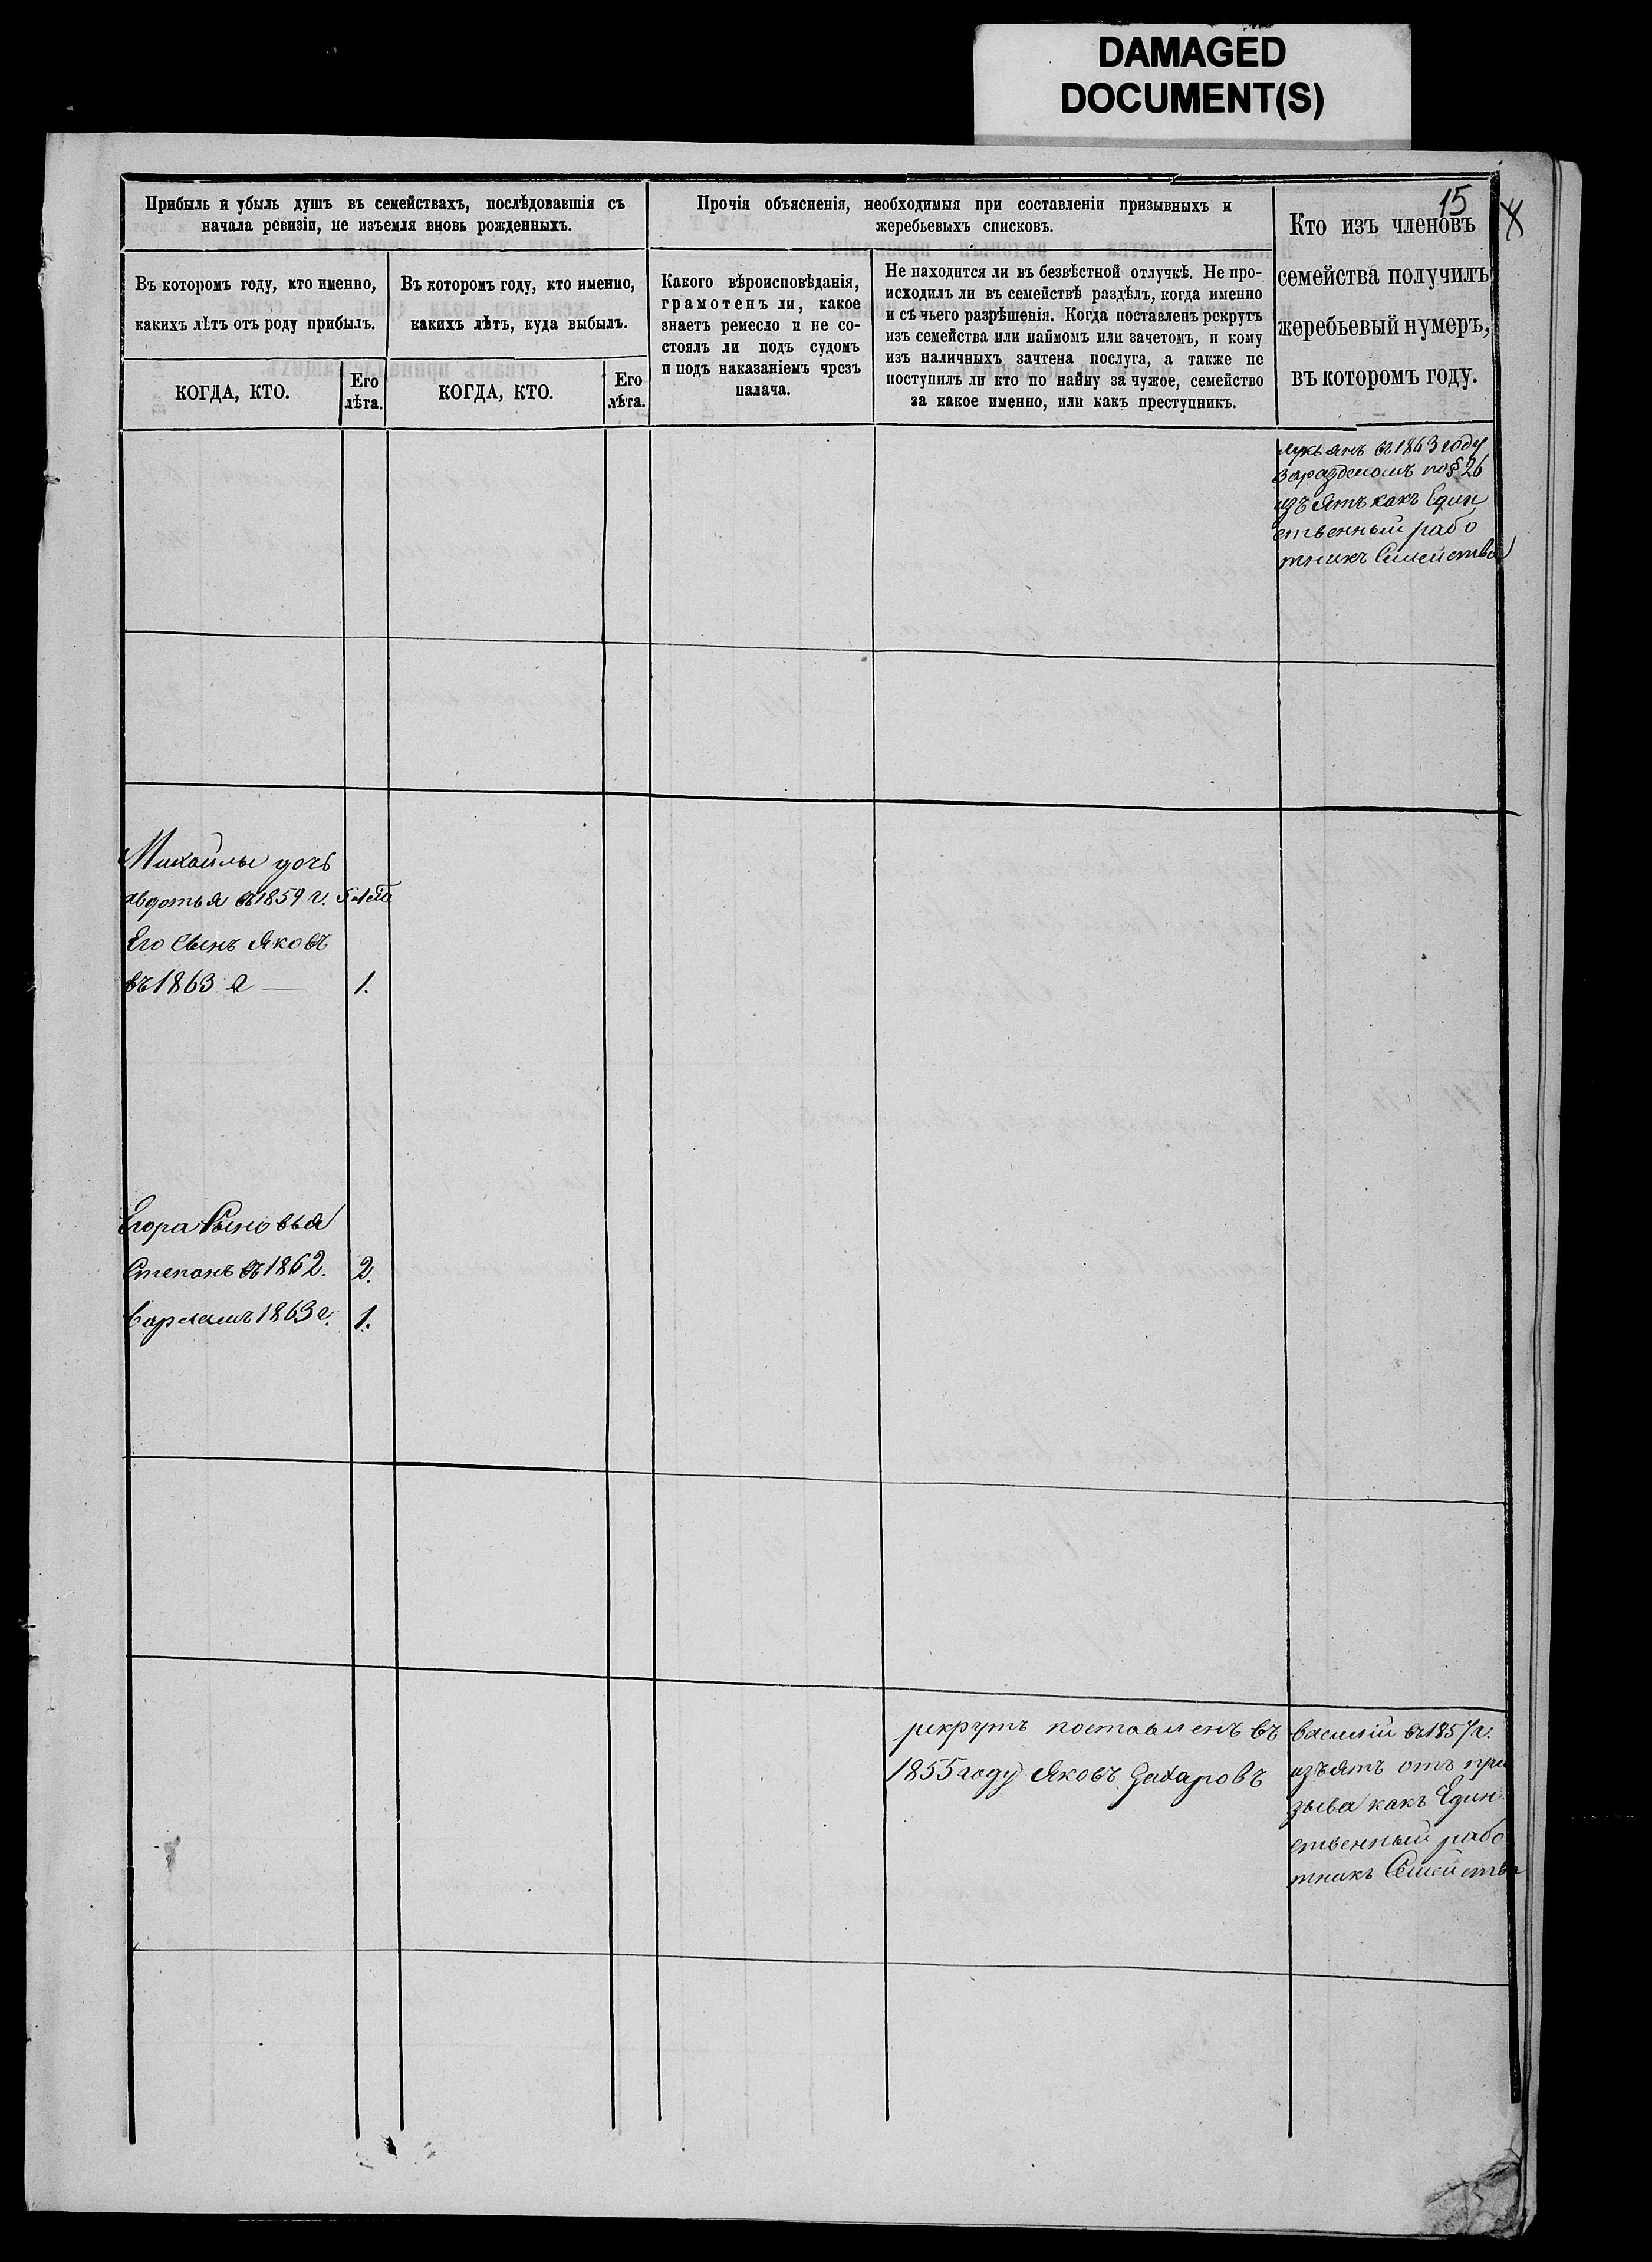 DAMAGED
DOCUMENT(S)
15
Прибыль и убыль душъ въ семействахъ, послѣдовавшія съ
начала ревизіи, не изъемля вновь рожденныхъ.
Прочія объясненія, необходимыя при составленіи призывныхъ и
жеребьевыхъ списковъ.
Кто изъ членовъ
семейства получилъ
жеребьевый нумеръ,
въ которомъ году.
Въ которомъ году, кто именно,
какихъ лѣтъ отъ роду прибылъ.
Въ которомъ году, кто именно,
какихъ лѣтъ, куда выбылъ.
Какого вѣроисповѣданія,
грамотенъ ли, какое
знаетъ ремесло и не со-
стоялъ ли подъ судомъ
и подъ наказаніемъ чрезъ
палача.
Не находится ли въ безвѣстной отлучкѣ. Не про-
исходилъ ли въ семействѣ раздѣлъ, когда именно
и съ чьего разрѣшенія. Когда поставленъ рекрутъ
изъ семейства или наймомъ или зачетомъ, и кому
изъ наличныхъ зачтена послуга, а также не
поступилъ ли кто по найму за чужое, семейство
за какое именно, или какъ преступникъ.
КОГДА, КТО.
Его
лѣта.
КОГДА, КТО.
Его
лѣта.
лукьянъ въ 1863 году
за разделомъ по § 26
изъятъ какъ Един
ственный рабо
тникъ Семейства
Михайлы дочь
авдотья въ 1859 г. 5 лѣтъ
Его Сынъ Яковъ
въ 1863 г — 1.
Егора Сыновья
Степанъ въ 1862. 2.
варламъ 1863 г. 1.
рекрутъ поставленъ въ
1855 году Яковъ Захаровъ
василій въ 1857 г.
изъятъ отъ при
зыва какъ Един
ственный рабо
тникъ Семейства